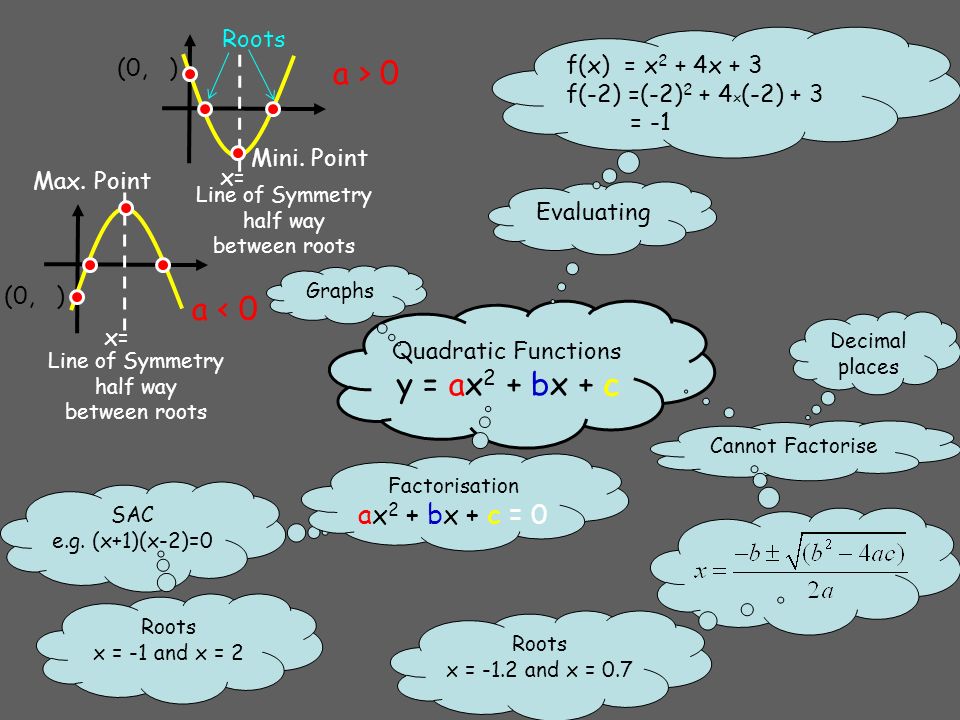 Roots
(0,   )
a > 0
Mini. Point
x=
Line of Symmetry
half way
between roots
Max. Point
(0,   )
a < 0
x=
Line of Symmetry
half way
between roots
f(x)  = x² + 4x + 3
f(-2) =(-2)² + 4×(-2) + 3
= -1
Evaluating
Graphs
Quadratic Functions
y = ax² + bx + c
Decimal
places
Cannot Factorise
Factorisation
ax² + bx + c = 0
SAC
e.g. (x+1)(x-2)=0
x = (-b ± √(b² – 4ac)) / 2a
Roots
x = -1 and x = 2
Roots
x = -1.2 and x = 0.7